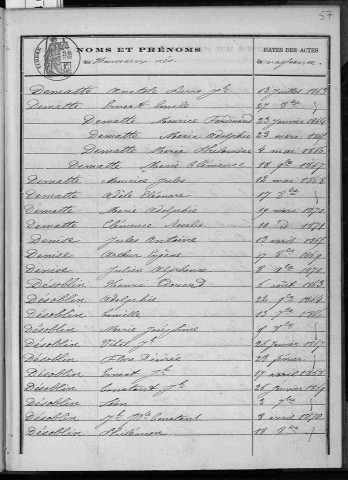 57
NOMS ET PRÉNOMS DATES DES ACTES
des Nouveaux nés de naissance
Dematte Anatole Livre Jh 13 juillet 1863
Dematte Ernest Emile 27 8bre
Dematte Maurice Fernand 23 janvier 1864
Dematte Maria Adolphie 23 mars
Dematte Maria 4 mai 1866
Dematte Marie Clémence 18 9bre 1867
Dematte Maurice Jules 12 mai 1868
Dematte Adèle Eléonore 17 8bre
Dematte Marie Adolphie 19 mars 1870
Dematte Clémence 10 d 1871
Denise Jules Antoine 13 avril
Denise Arthur Eugène 17 8bre 1869
Denise Julien Alphonse 8 1872
Désoblin Henri Edouard 6 août 1863
Désoblin Adolphie 22 9bre 1864
Désoblin Camille 13 7bre
Désoblin Marie Joséphine 9 8bre
Désoblin Vital Jh 25 janvier 1867
Désoblin Flore Désirée 28 février
Désoblin Ernest Jh 17 avril 1868
Désoblin Constant Jh 26 janvier 1869
Désoblin Léon 3 7bre
Désoblin Jh Bte Constant 8 avril 1870
Désoblin Philémon 18 8bre